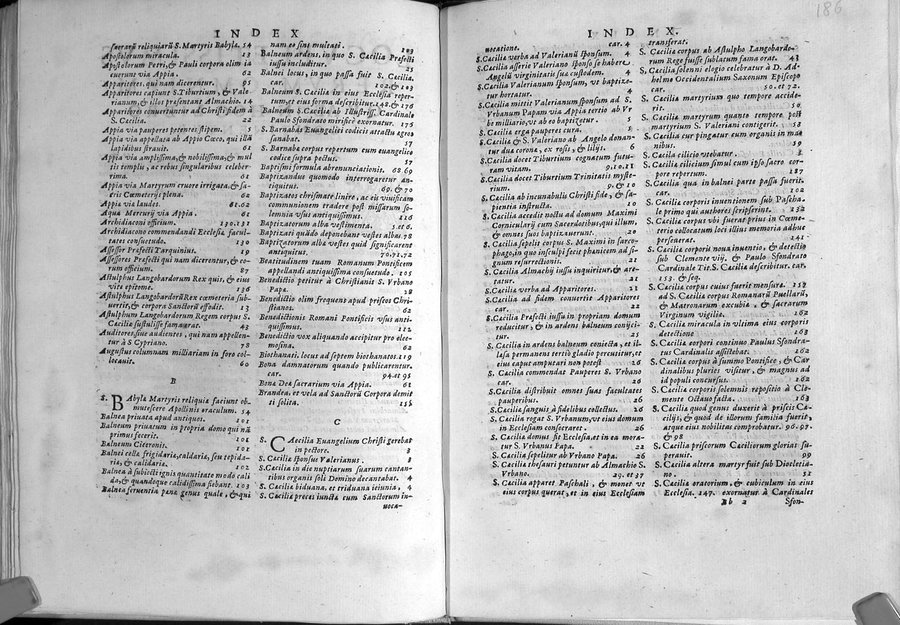 INDEX
sacrarũ reliquiarũ S. Martyris Babylæ. 54
Apostolorum miracula. 13
Apostolorum Petri, & Pauli corpora olim ia
cuerunt via Appia. 62
Apparitores, qui nam dicerentur. 21
Apparitores capiunt S. Tiburtium, & Vale
rianum, & illos præsentant Almachio. 14
Apparitores conuertuntur ad Christi fidem à
S. Cæcilia. 22
Appia via pauperes petentes stipem. 5
Appia via appellata ab Appio Cæco, qui illã
lapidibus strauit. 61
Appia via amplissima, & nobilissima, & mul
tis templis, ac rebus singularibus celeber-
rima. 61
Appia via Martyrum cruore irrigata, & sa-
cris Cœmeterijs plena. 62
Appia via laudes. 61.62
Aqua Mercurij via Appia. 61
Archidiaconi officium. 130.131
Archidiacono commendandi Ecclesiæ facul-
tates consuetudo. 130
Assessor Præfecti Tarquinius. 19
Assessores Præfecti qui nam dicerentur, & eo-
rum officium. 87
Astulphus Langobardorum Rex quis, & eius
vitæ epitome. 136
Astulphus Langobardorũ Rex cœmeteria sub-
uertit, & corpora Sanctorũ effodit. 13
Astulphum Langobardorum Regem corpus S.
Cæciliæ sustulisse fama erat. 43
Auditores siue audientes, qui nam appellen-
tur à S Cypriano. 78
Augustus columnam milliariam in foro col-
locauit. 60
B
S. BAbylæ Martyris reliquiæ faciunt ob-
mutescere Apollinis oraculum. 54
Balnea priuata apud antiquos. 101
Balneum priuatum in propria domo qui nã
primus fecerit. 101
Balneum Ciceronis. 101
Balnei cella frigidaria, caldaria, seu tepida-
ria, & calidaria. 102
Balnea à subiectis ignis quantitate modo cali
da, & quandoque calidissima fiebant. 103
Balnea seruentia pœnæ genus quale, & qui
nam eo sint multati. 103
Balneum ardens, in quo S. Cæcilia Præfecti
iussu includitur. 25
Balnei locus, in quo passa fuit S. Cæcilia.
car. 102. & 103
Balneum S. Cæcilia in eius Ecclesia reper-
tum, et eius forma describitur. 148. & 176
Balneum S. Cæcilia ab Illustriss. Cardinale
Paulo Sfondrato mirificè exornatur. 176
S. Barnabas Euangelici codicis attactu ægros
sanabat. 57
S. Barnaba corpus repertum cum euangelico
codice supra pectus. 57
Baptismi formula abrenunciationis. 68.69
Baptizandus quomodo interrogaretur an-
tiquitus. 69. & 70
Baptizatos chrismate linire, ac eis viuificam
communionem tradere post missarum so-
lemnia vsus antiquissimus. 116
Baptizatorum alba vestimenta. 5. et 6.
Baptizati quãdo deponebant vestes albas. 78
Baptizatorum albæ vestes quid significarent
antiquitus. 70.71.72
Beatitudinem tuam Romanum Pontificem
appellandi antiquissima consuetudo. 105
Benedictio petitur à Christianis S. Vrbano
Papa. 28
Benedictio olim frequens apud priscos Chri-
stianos. 62
Benedictionis Romani Pontificis vsus anti-
quissimus. 112
Benedictio vox aliquando accipitur pro elee-
mosina. 62
Biothanati. locus ad septem biothanatos. 119
Bona damnatorum quando publicarentur.
car. 94. et 95
Bona Dea sacrarium via Appia. 61
Brandea. et vela ad Sanctorũ Corpora demit
ti solita. 156
C
S. CAecilia Euangelium Christi gerebat
in pectore. 3
S. Cæciliæ sponsus Valerianus. 3
S. Cæcilia in die nuptiarum suarum cantan-
tibus organis soli Domino decantabat. 4
S. Cæciliæ biduana, et triduana ieiunia. 4
S. Cæciliæ preces iunctæ cum Sanctorum in-
uoca-
INDEX.
186
uocatione. car. 4
S. Cæciliæ verba ad Valerianũ sponsum. 4
S. Cæcilia asserit Valeriano sponso se habere
Angelũ virginitatis suæ custodem. 4
S. Cæcilia Valerianum sponsum, vt baptize-
tur hortatur. 4
S. Cæcilia mittit Valerianum sponsum ad S.
Vrbanum Papam via Appia tertio ab Vr
be milliario, vt ab eo baptizetur. 5
S. Cæciliæ erga pauperes cura. 5
S. Cæcilia & S. Valeriano ab Angelo donan-
tur duæ coronæ, ex rosis, & lilijs. 6
S. Cæcilia docet Tiburtium cognatum futu-
ram vitam. 9.10.11
S. Cæcilia docet Tiburtium Trinitatis myste-
rium. 9. & 10
S. Cæcilia ab incunabulis Christi fide, & sa-
pientia instructa. 10
S. Cæcilia accedit noctu ad domum Maximi
Cornicularij cum Sacerdotibus, qui illum,
& omnes suos baptizauerunt. 16
S. Cæcilia sepelit corpus S. Maximi in sarco-
phago, in quo insculpi fecit phœnicem ad si-
gnum resurrectionis. 21
S. Cæcilia Almachij iussu inquiritur, & arc-
tatur. 21
S. Cæciliæ verba ad Apparitores. 21
S. Cæcilia ad fidem conuertit Apparitores
car. 22
S. Cæcilia Præfecti iussu in propriam domum
reducitur, & in ardens balneum conijci-
tur. 25
S. Cæcilia in ardens balneum coniecta, et il-
læsa permanens tertiò gladio percutitur, et
eius caput amputari non potest 26
S. Cæcilia commendat Pauperes S. Vrbano
car. 26
S. Cæcilia distribuit omnes suas facultates
pauperibus. 26
S. Cæciliæ sanguis à fidelibus collectus. 26
S. Cæcilia rogat S. Vrbanum, vt eius domum
in Ecclesiam consecraret. 26
S. Cæciliæ domus fit Ecclesia, et in ea mora-
tur S. Vrbanus Papa. 22
S. Cæcilia sepelitur ab Vrbano Papa. 26
S. Cæciliæ thesauri petuntur ab Almachio S.
Vrbano. 29. et 37
S. Cæcilia apparet Paschali, & monet vt
eius corpus quærat, et in eius Ecclesiam
transferat.
S. Cæciliæ corpus ab Astulpho Langobardo-
rum Rege fuisse sublatum fama erat. 43
S. Cæcilia solenni elogio celebratur à D. Ad-
helmo Occidentalium Saxonum Episcopo
car. 50. et 72.
S. Cæciliæ martyrium quo tempore acci-
derit. 50
S. Cæciliæ martyrium quanto tempore post
martyrium S. Valeriani contigerit. 52
S. Cæcilia cur pingatur cum organis in ma
nibus. 59
S. Cæcilia cilicio vtebatur. 2
S. Cæciliæ cilicium simul cum ipso sacro cor-
pore repertum. 187
S. Cæcilia qua in balnei parte passa fuerit.
car. 102
S. Cæciliæ corporis inuentionem sub Pascha-
le primo qui authores scripserint. 152
S. Cæciliæ corpus vbi fuerat prius in Cœme-
terio collocatum loci illius memoria adhuc
perseuerat. 141
S. Cæciliæ corporis noua inuentio, & detectio
sub Clemente viij. & Paulo Sfondrato
Cardinale Tit. S. Cæciliæ describitur. car.
153. & seq.
S. Cæciliæ corpus cuius fuerit mensuræ. 158
ad S. Cæciliæ corpus Romanarũ Puellarũ,
& Matronarum excubiæ, & sacrarum
Virginum vigilia. 162
S. Cæciliæ miracula in vltima eius corporis
detectione 163
S. Cæciliæ corpori continuo Paulus Sfondra-
tus Cardinalis assistebat. 162
S. Cæciliæ corpus à summo Pontifice, & Car
dinalibus pluries visitur, & magnus ad
id populi concursus. 162
S. Cæciliæ corporis solemnis repositio à Cle-
mente Octauo facta. 163
S. Cæcilia quod genus duxerit à priscis Cæ-
cilijs, & quod de illorum familia fuerit,
atque eius nobilitas comprobatur. 96.97.
& 98
S. Cæcilia priscorum Cæciliorum gloriæ su-
perauit. 99
S. Cæcilia altera martyr fuit sub Diocletia-
no. 51
S. Cæciliæ oratorium, & cubiculum in eius
Ecclesia. 147. exornatur à Cardinales
Bb 2 Sfon-